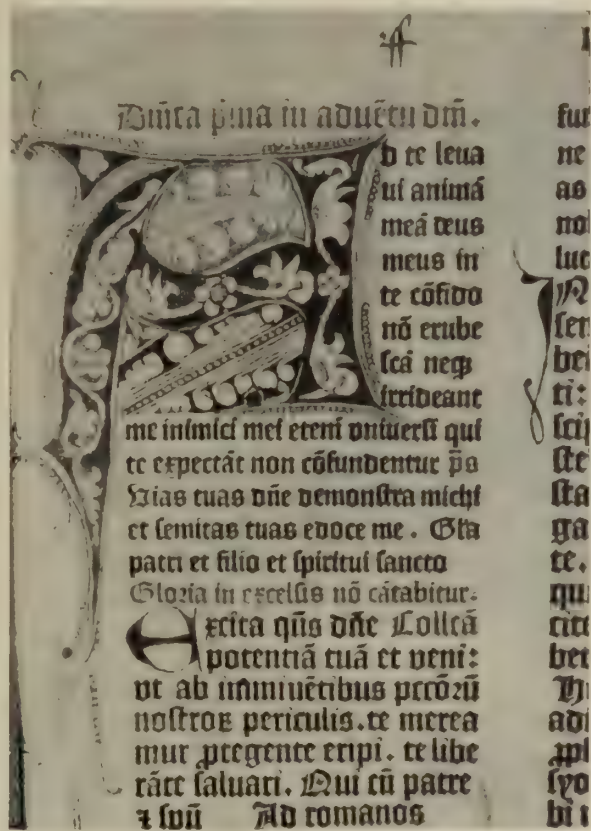 Dn̄ica p̄ma in aduētu dn̄i.
Ad te leua
ui animā
meā deus
meus in
te cōfido
nō erube
ſcā neqȝ
irrideant
me inimici mei eteni vniuerſi qui
te expectāt non cōfundentur p̄s
Vias tuas dn̄e demonſtra michi
et ſemitas tuas edoce me . Gl̄a
patri et filio et ſpiritui ſancto
Gloria in excelſis nō cātabitur.
Excita qūs dn̄e Collcā
potentiā tuā et veni:
vt ab imminētibus pctōꝝū
noſtroꝝ periculis.te merea
mur ꝓtegente eripi. te libe
rāte ſaluari. Qui cū patre
⁊ ſpū Ad romanos
fut
ne
as
no
luc
N
ſer
bei
ti:
ſcip
ſte
ſta
ga
te.
qu
cite
bet
Hi
adi
ꝓpl
ſyo
bi